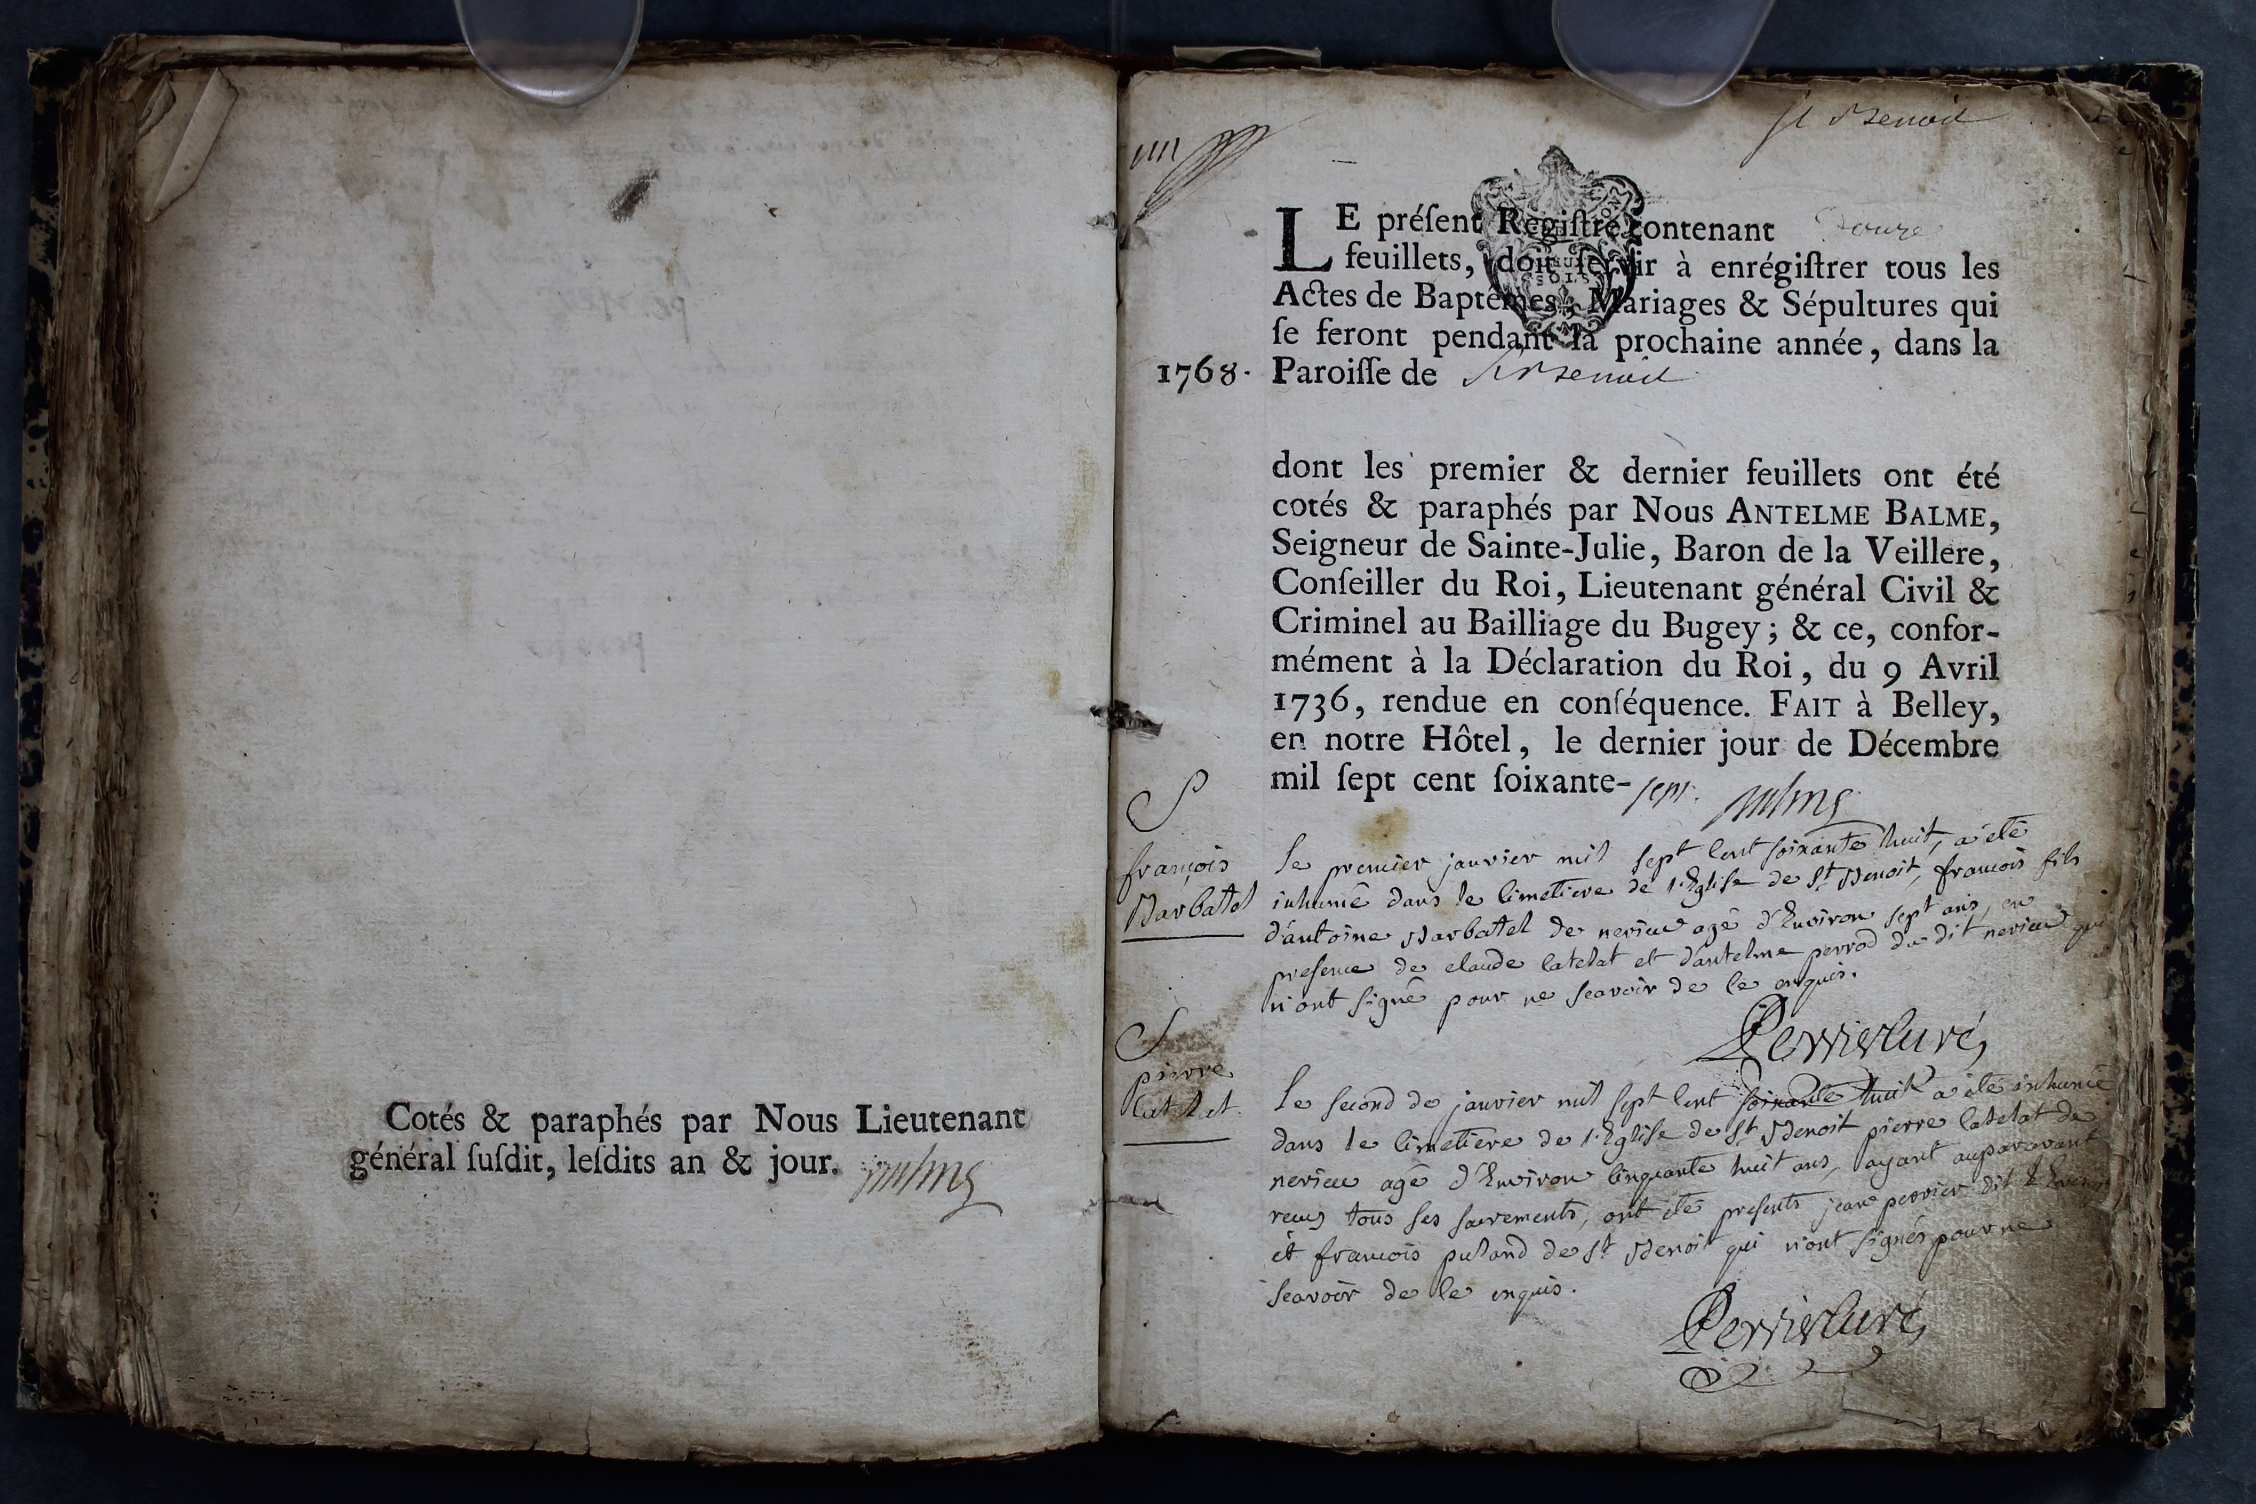 Cotés & paraphés par Nous Lieutenant
général ſuſdit, leſdits an & jour.
St Benoit
LE préſent Regiſtre contenant Douze
feuillets, doit ſervir à enrégiſtrer tous les
Actes de Baptêmes, Mariages & Sépultures qui
ſe feront pendant la prochaine année, dans la
1768. Paroiſſe de St Benoit
dont les premier & dernier feuillets ont été
cotés & paraphés par Nous ANTELME BALME,
Seigneur de Sainte-Julie, Baron de la Veillere,
Conſeiller du Roi, Lieutenant général Civil &
Criminel au Bailliage du Bugey; & ce, confor-
mément à la Déclaration du Roi, du 9 Avril
1736, rendue en conſéquence. FAIT à Belley,
en notre Hôtel, le dernier jour de Décembre
mil ſept cent ſoixante-sept. Balme
S
françois
Barbattel
Le premier janvier mil sept cent soixante huit, a été
inhumé dans le cimetiere de l'Eglise de St Benoit, francois fils
d'antoine Barbattel de nerieu agé d'Environ sept ans, en
presence de claude catelat et d'antelme perrod du dit nerieu qui
n'ont signé pour ne scavoir de ce enquis.
Perrier Curé
S
pierre
Catelat
Le second de janvier mil sept cent soixante huit a été inhumé
dans le cimetiere de l'Eglise de St Benoit pierre catelat de
nerieu agé d'Environ cinquante huit ans, ayant auparavant
recus tous ses sacrements, ont été presents jean perrier dit
et francois puland de St Benoit qui n'ont signés pour ne
scavoir de ce enquis.
Perrier Curé